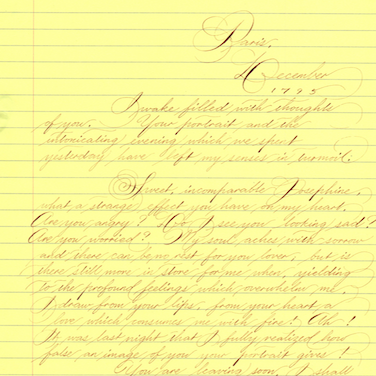 Paris,
December
1795
I wake filled with thoughts
of you. Your portrait and the
intoxicating evening which we spent
yesterday have left my senses in turmoil.
Sweet, incomparable Josephine,
what a strange effect you have on my heart.
Are you angry? Do I see you looking sad?
Are you worried? My soul aches with sorrow
and there can be no rest for your lover, but is
there still more in store for me when, yielding
to the profound feelings which overwhelm me,
I draw from your lips, from your heart a
love which consumes me with fire? Ah!
It was last night that I fully realized how
false an image of you your portrait gives!
You are leaving soon, I shall